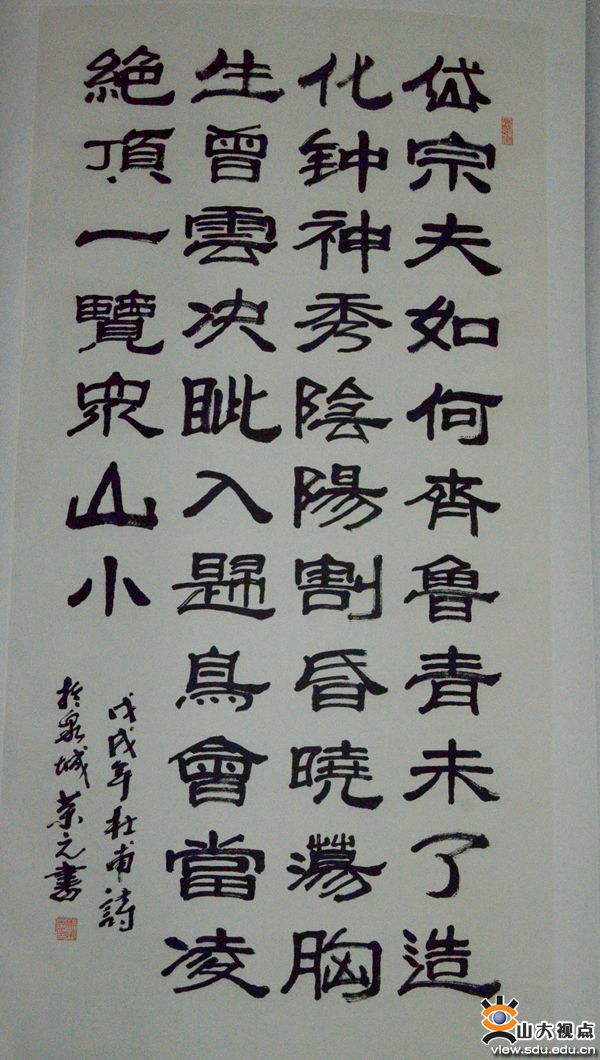 岱宗夫如何齊魯青未了造
化钟神秀陰陽割昏曉蕩胸
生曾雲决眦入歸鳥會當凌
絶頂一覽众山小
戊戌年杜甫詩
於泉城荣元書
山大视点
view.sdu.edu.cn